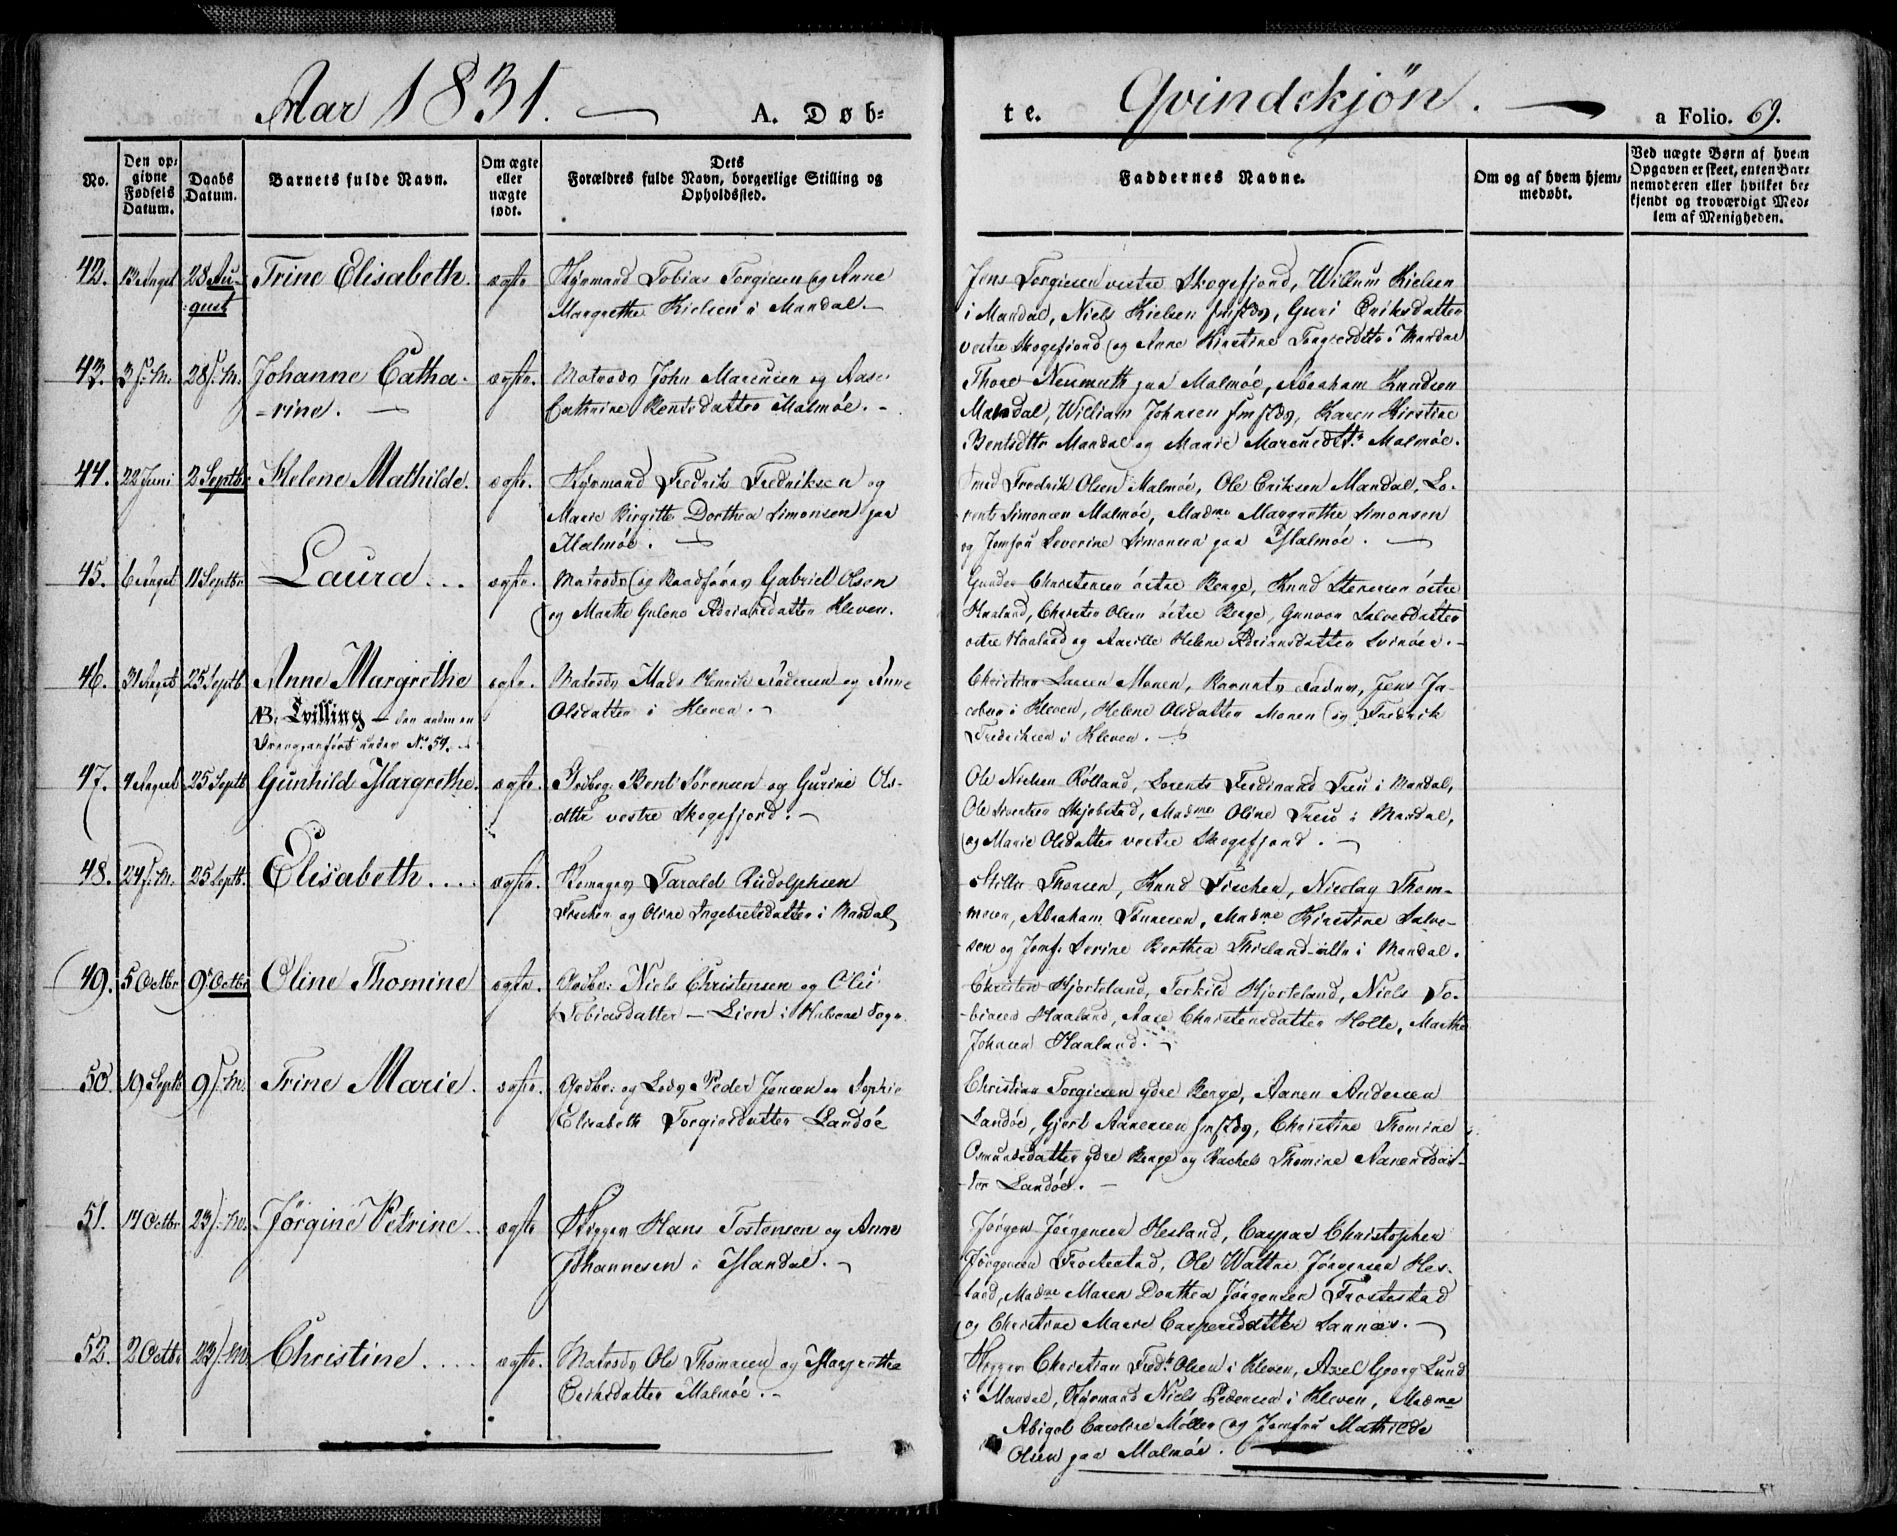 Aar 1831. A. Døb=
te. Qvindekjön. a Folio. 69.
No.
Den op=
givne
Fødsels
Datum.
Daabs
Datum.
Barnets fulde Navn.
Om ægte
eller
uægte
født.
Dets
Forældres fulde Navn, borgerlige Stilling og
Opholdssted.
Faddernes Navne.
Om og af hvem hjem=
medøbt.
Ved uægte Børn af hvem
Opgaven er skeet, enten Bar=
nemoderen eller hvilket be=
kjendt og troværdigt Med=
lem af Menigheden.
42. 13 August 28 Au-
gust
Trine Elisabeth ægte
Styrmand Tobias Torgiesen og Anne
Margrethe Kielsen i Mandal.
Jens Torgiesen vestre Skogsfjord, Willum Kielsen
i Mandal, Niels Kielsen smstds, Guri Eriksdatter
vestre Skogsfjord og Anne Kirstine i Mandal
43. 3 s: M. 28 s: M. Johanne Catha-
-rine. ægte.
Matrods John Marcusen og Aase
Cathrine Bentsdatter Malmöe.
Thore Neumuth paa Malmöe, Abraham Knudsen
Mandal, William Johnsen smstds, Karen Kirstine
Bentsdttr Mandal og Marie Marcusdtr Malmöe.
44. 22 Juni 2 Septbr Helene Mathilde. ægte.
Styrmand Fredrik Fredriksen og
Marie Birgitte Dorthea Simonsen paa
Malmöe.
Smed Fredrik Olsen Malmöe, Ole Eriksen Mandal, Lo-
rents Simonsen Malmöe, Madme Margrethe Simonsen
og Jomfru Severine Simonsen paa Malmöe.
45. 6 August 11 Septbr Laura ægte.
Matrods og Baadförer Gabriel Olsen
og Marthe Gulena Adriansdatter Kleven.
Gunder Christensen östre Berge, Knud Stensen östre
Haaland, Christen Olsen östre Berge, Gunvor Salvesdatter
östre Haaland og Helene Adriansdatter Svinöer.
46. 31 August 25 Septb Anne Margrethe
NB: Tvilling - den anden en
Dreng, anfört under No 54.
ægte.
Matrods Mads Henrik Andersen og Anne
Olsdatter i Kleven.
Christian Larsen Monen, Barnets Fader, Jens Ja-
cobsen i Kleven, Helene Olsdatter Monen og Fredrik
Fredriksen i Kleven.
47. 4 August 25 Septb Gunhild Margrethe. ægte.
Grdbrg. Bent Sörensen og Gurine Ols-
dttr vestre Skogsfjord.
Ole Nielsen Rölland, Lorents Ferdinand Treu i Mandal,
Ole Sivertsen Skjebstad, Madme Oline Treu i Mandal,
og Marie Olsdatter vestre Skogsfjord.
48. 24 s: M. 25 Septb. Elisabeth ægte.
Tarald Rudolphsen
Fischer og Oline Ingebretsdatter i Mandal
Thorsen, Knud Fischer, Nicolay Thom-
mesen, Abraham Tönnesen, Madme Kirstine Salve-
sen og Jomf: Serine Berthea Thieland alle i Mandal.
49. 5 Octbr 9 Octbr Oline Thomine ægte.
Grdbr: Niels Christensen og Oli
Tobiasdatter - Lien i Halsaae Sogn.
Christen Hjorteland, Terkild Hjorteland, Niels To-
biasen Haaland, Aase Christensdatter Holte, Marthe
Johnsen Haaland.
50. 19 Septb 9 s: M. Trine Marie. ægte.
Grdbr: og Lods Peder Jensen og Sophie
Elisabeth Torgiersdatter Landöe
Christian Torgiesen ydre Berge, Aanen Andersen
Landöe, Gjert Aanensen smstds, Christine Thomine
Osmundsdatter ydre Berge og Rachel Thomine Aanensdat-
ter Landöe.
51. 17 Octbr 23 s: M. Jörgine Petrine ægte
Skipper Hans Tostensen og Anne
Johannesen i Mandal.
Jörgen Jörgensen Hesland, Caspar Christopher
Jörgensen Frostestad, Ole Wattne Jörgensen Hes-
land, Madme Maren Dorthea Jörgensen Frostestad
og Christine Marie Caspersdatter Sannæs.
52. 2 Octbr 23 s: M. Christine ægte.
Matrods Ole Thomassen og Margrethe
Eriksdatter Malmöe.
Skipper Christian Fredk Olsen i Kleven, Axel Georg Lund
i Mandal, Styrmand Niels Pedersen i Kleven, Madme
Abigel Caroline Möller og Jomfru Mathilde
Olsen paa Malmöe.